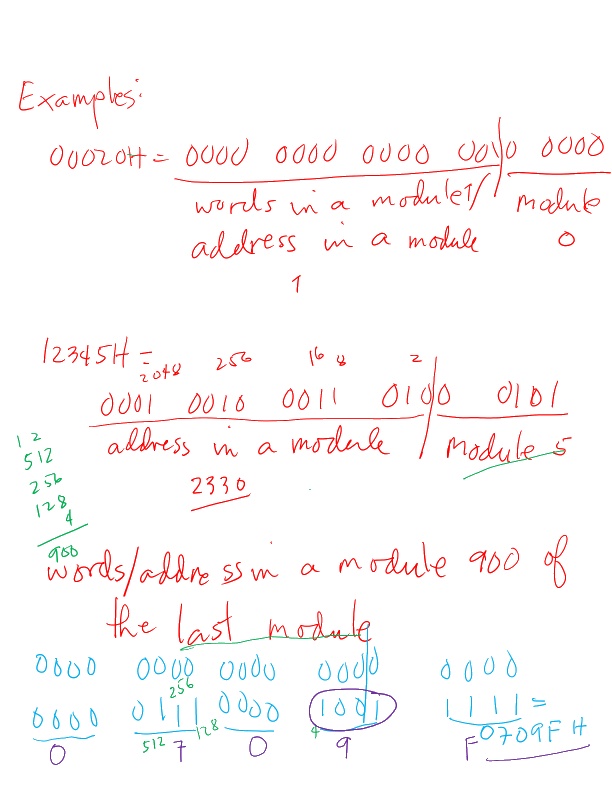 Examples:
00020H = 0000 0000 0000 0010 0000
words in a module 1/ module
address in a module 0
1
12345H =
2048 256 16 8 2
0001 0010 0011 0100 0101
address in a module / module 5
2330
12
512
256
128
4
900
words/address in a module 900 of
the last module
0000 0000 0000 0000 0000
256
0000 0111 0000 1001 1111 =
512 128 4
0 7 0 9 F 0709F H